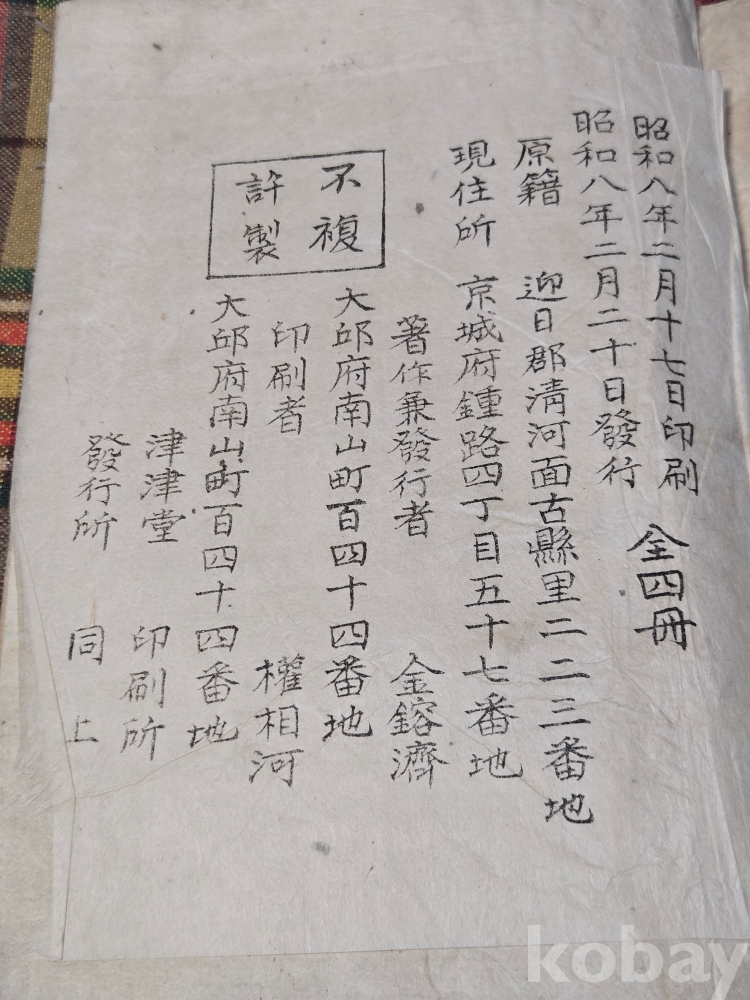 昭和八年二月十七日印刷
全四冊
昭和八年二月二十日發行
原籍 迎日郡淸河面古縣里二二三番地
現住所 京城府鍾路四丁目五十七番地
著作兼發行者 金鎔濟
不複
許製
大邱府南山町百四十四番地
印刷者 權相河
大邱府南山町百四十四番地
津津堂 印刷所
發行所 同上
kobay